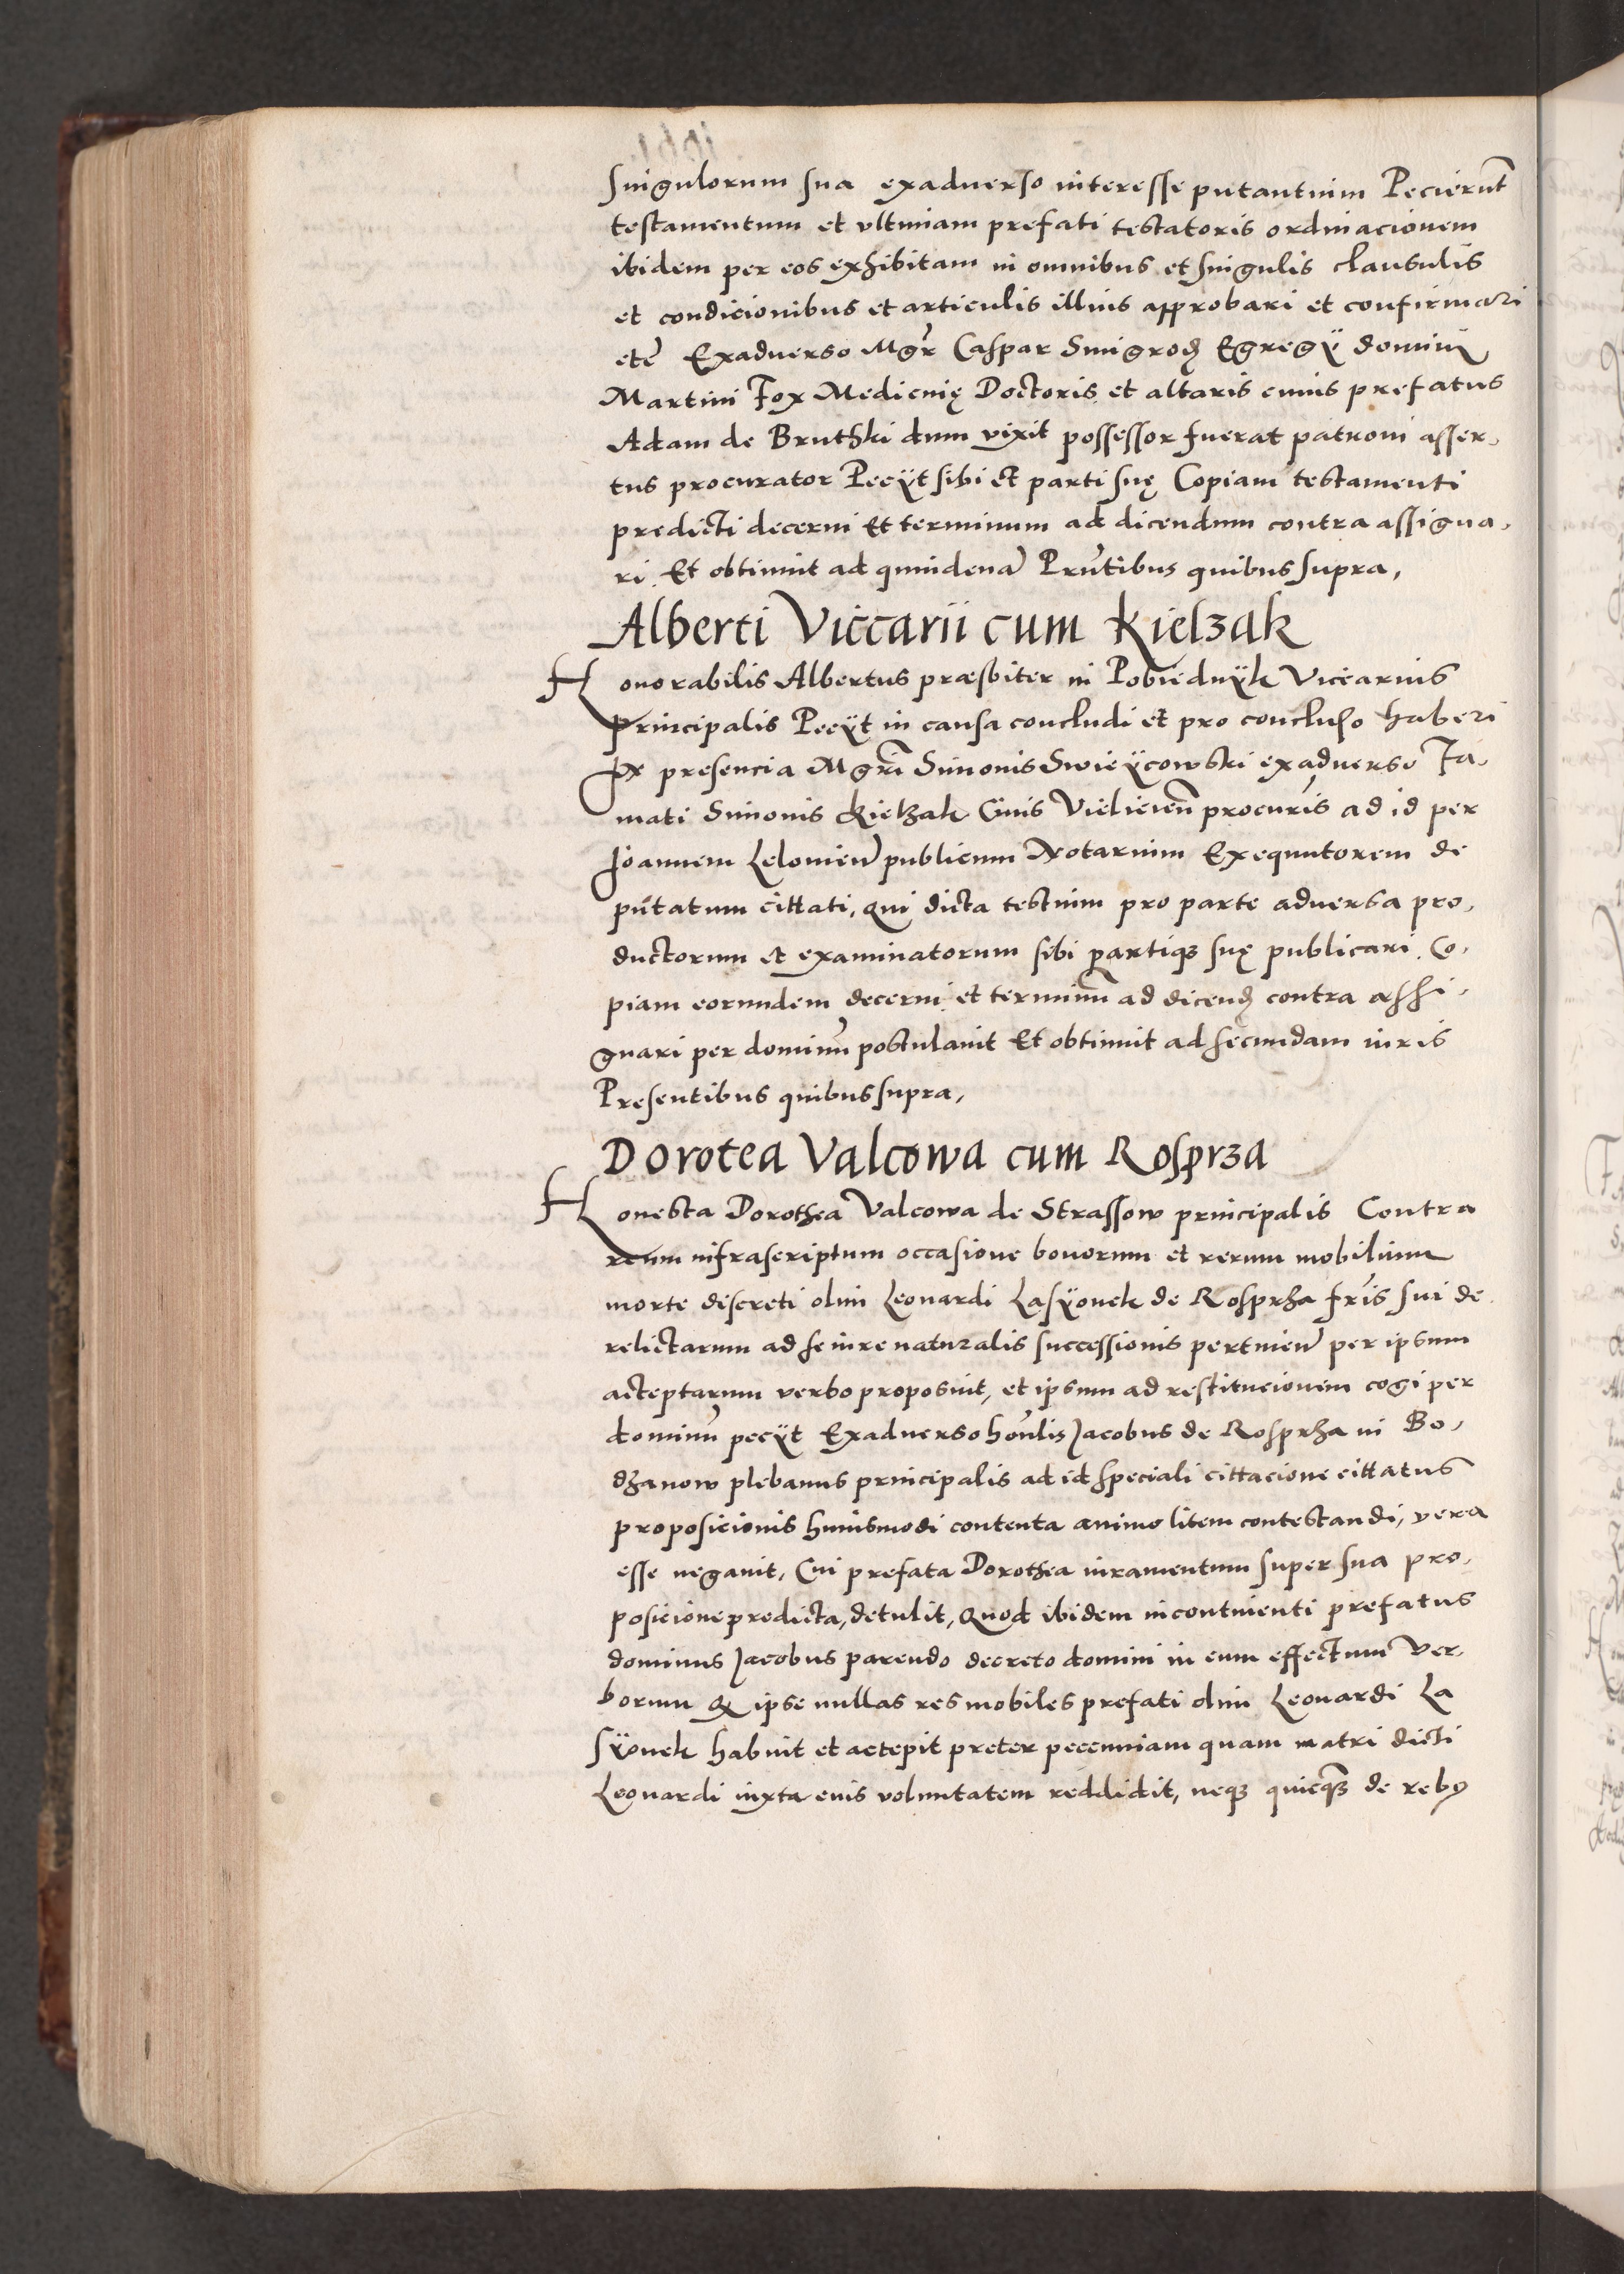 singulorum sua exadverso interesse putantium Pecierūt
testamentum et ultimam prefati testatoris ordinacionem
ibidem per eos exhibitam in omnibus et singulis clausulis
et condicionibus et articulis illius approbari et confirmari
etc̄ Exadverso Mgr̄ Caspar Smigrod̄ Egregÿ domini
Martini Fox Medicinę Doctoris et altaris cuius prefatus
Adam de Bruthki dum vixit possessor fuerat patroni asser-
tus procurator Pecÿt sibi et parti suę Copiam testamenti
predicti decerni Et terminum ad dicendum contra assigna-
ri. Et obtinuit ad quindenā Prn̄tibus quibus supra,
Alberti Viccarii cum Kielzak
Honorabilis Albertus præsbiter in Pobiednÿk Viccarius
principalis Pecÿt in causa concludi et pro concluso haberi
In presencia Mgrī Simonis Swieÿcowski exadverso Fa-
mati Simonis Kielzak Civis Vieliciēn procurīs ad id per
Joannem Leloviēn publicum Notarium Exequutorem de
putatum cittati, qui dicta testium pro parte adversa pro-
ductorum et examinatorum sibi partiq3 suę publicari. Co-
piam eorundem decerni et terminū ad dicend̄ contra assi-
gnari per dominū postulavit Et obtinuit ad secundam iuris
Presentibus quibus supra,
Dorotea Valcowa cum Rosprza
Honesta Dorothea Valcowa de Strassow principalis Contra
reum infrascriptum occasione bonorum et rerum mobilium
morte discreti olim Leonardi Lasÿonek de Rosprza frīs sui de
relictarum ad se iure naturalis successionis pertineñ per ipsum
acceptarum verbo proposuit, et ipsum ad restitucionem cogi per
dominū pecÿt Exadverso hon̄lis Jacobus de Rosprza in Bo-
dzanow plebanus principalis ad id speciali cittacione cittatus
proposicionis huiusmodi contenta animo litem contestandi, vera
esse negavit, Cui prefata Dorothea iuramentum super sua pro-
posicione predicta, detulit, Quod ibidem incontinenti prefatus
dominus Jacobus parendo decreto domini in eum effectum ver-
borum Q̄ ipse nullas res mobiles prefati olim Leonardi La
sÿonek habuit et accepit preter pecenniam quam matri dicti
Leonardi iuxta eius voluntatem reddidit, neq3 quicq̄3 de reb9